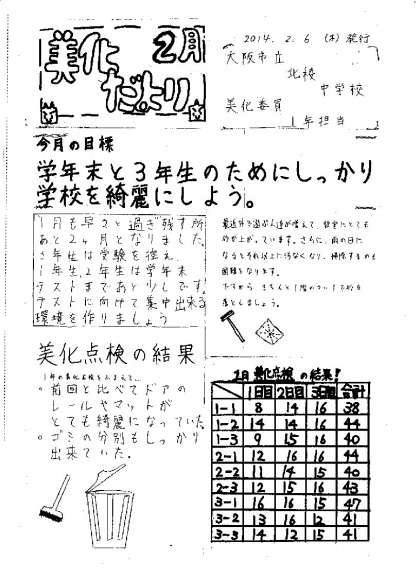 美化だより 2月
2014. 2. 6 (木) 発行
大阪市立
北稜
中学校
美化委員
1年担当
今月の目標
学年末と3年生のためにしっかり
学校を綺麗にしよう。
1月も早々と過ぎ残す所
あと2ヶ月となりました。
3年生は受験を控え、
1年生、2年生は学年末
テストまであと少しです。
テストに向けて集中出来る
環境を作りましょう
最近外で遊ぶ人達が増えて、校舎にとても
砂が上がっています。さらに、雨の日に
なるとそれ以上に汚なくなり、掃除するのも
困難となります。
ですから、きちんと1階の
落としましょう。
美化点検の結果
○前回と比べてドアの
レールやマットが
とても綺麗になっていた。
○ゴミの分別もしっかり
出来ていた。
1月 美化点検 の結果!
1日目 2日目 3日目 合計
1-1 8 14 16 38
1-2 14 14 16 44
1-3 9 15 16 40
2-1 12 16 16 44
2-2 11 14 15 40
2-3 12 15 16 43
3-1 16 16 15 47
3-2 13 16 12 41
3-3 14 12 15 41